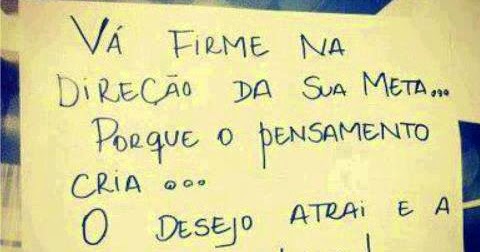 VÁ FIRME NA
DIREÇÃO DA SUA META...
PORQUE O PENSAMENTO
CRIA ...
O DESEJO ATRAI E A